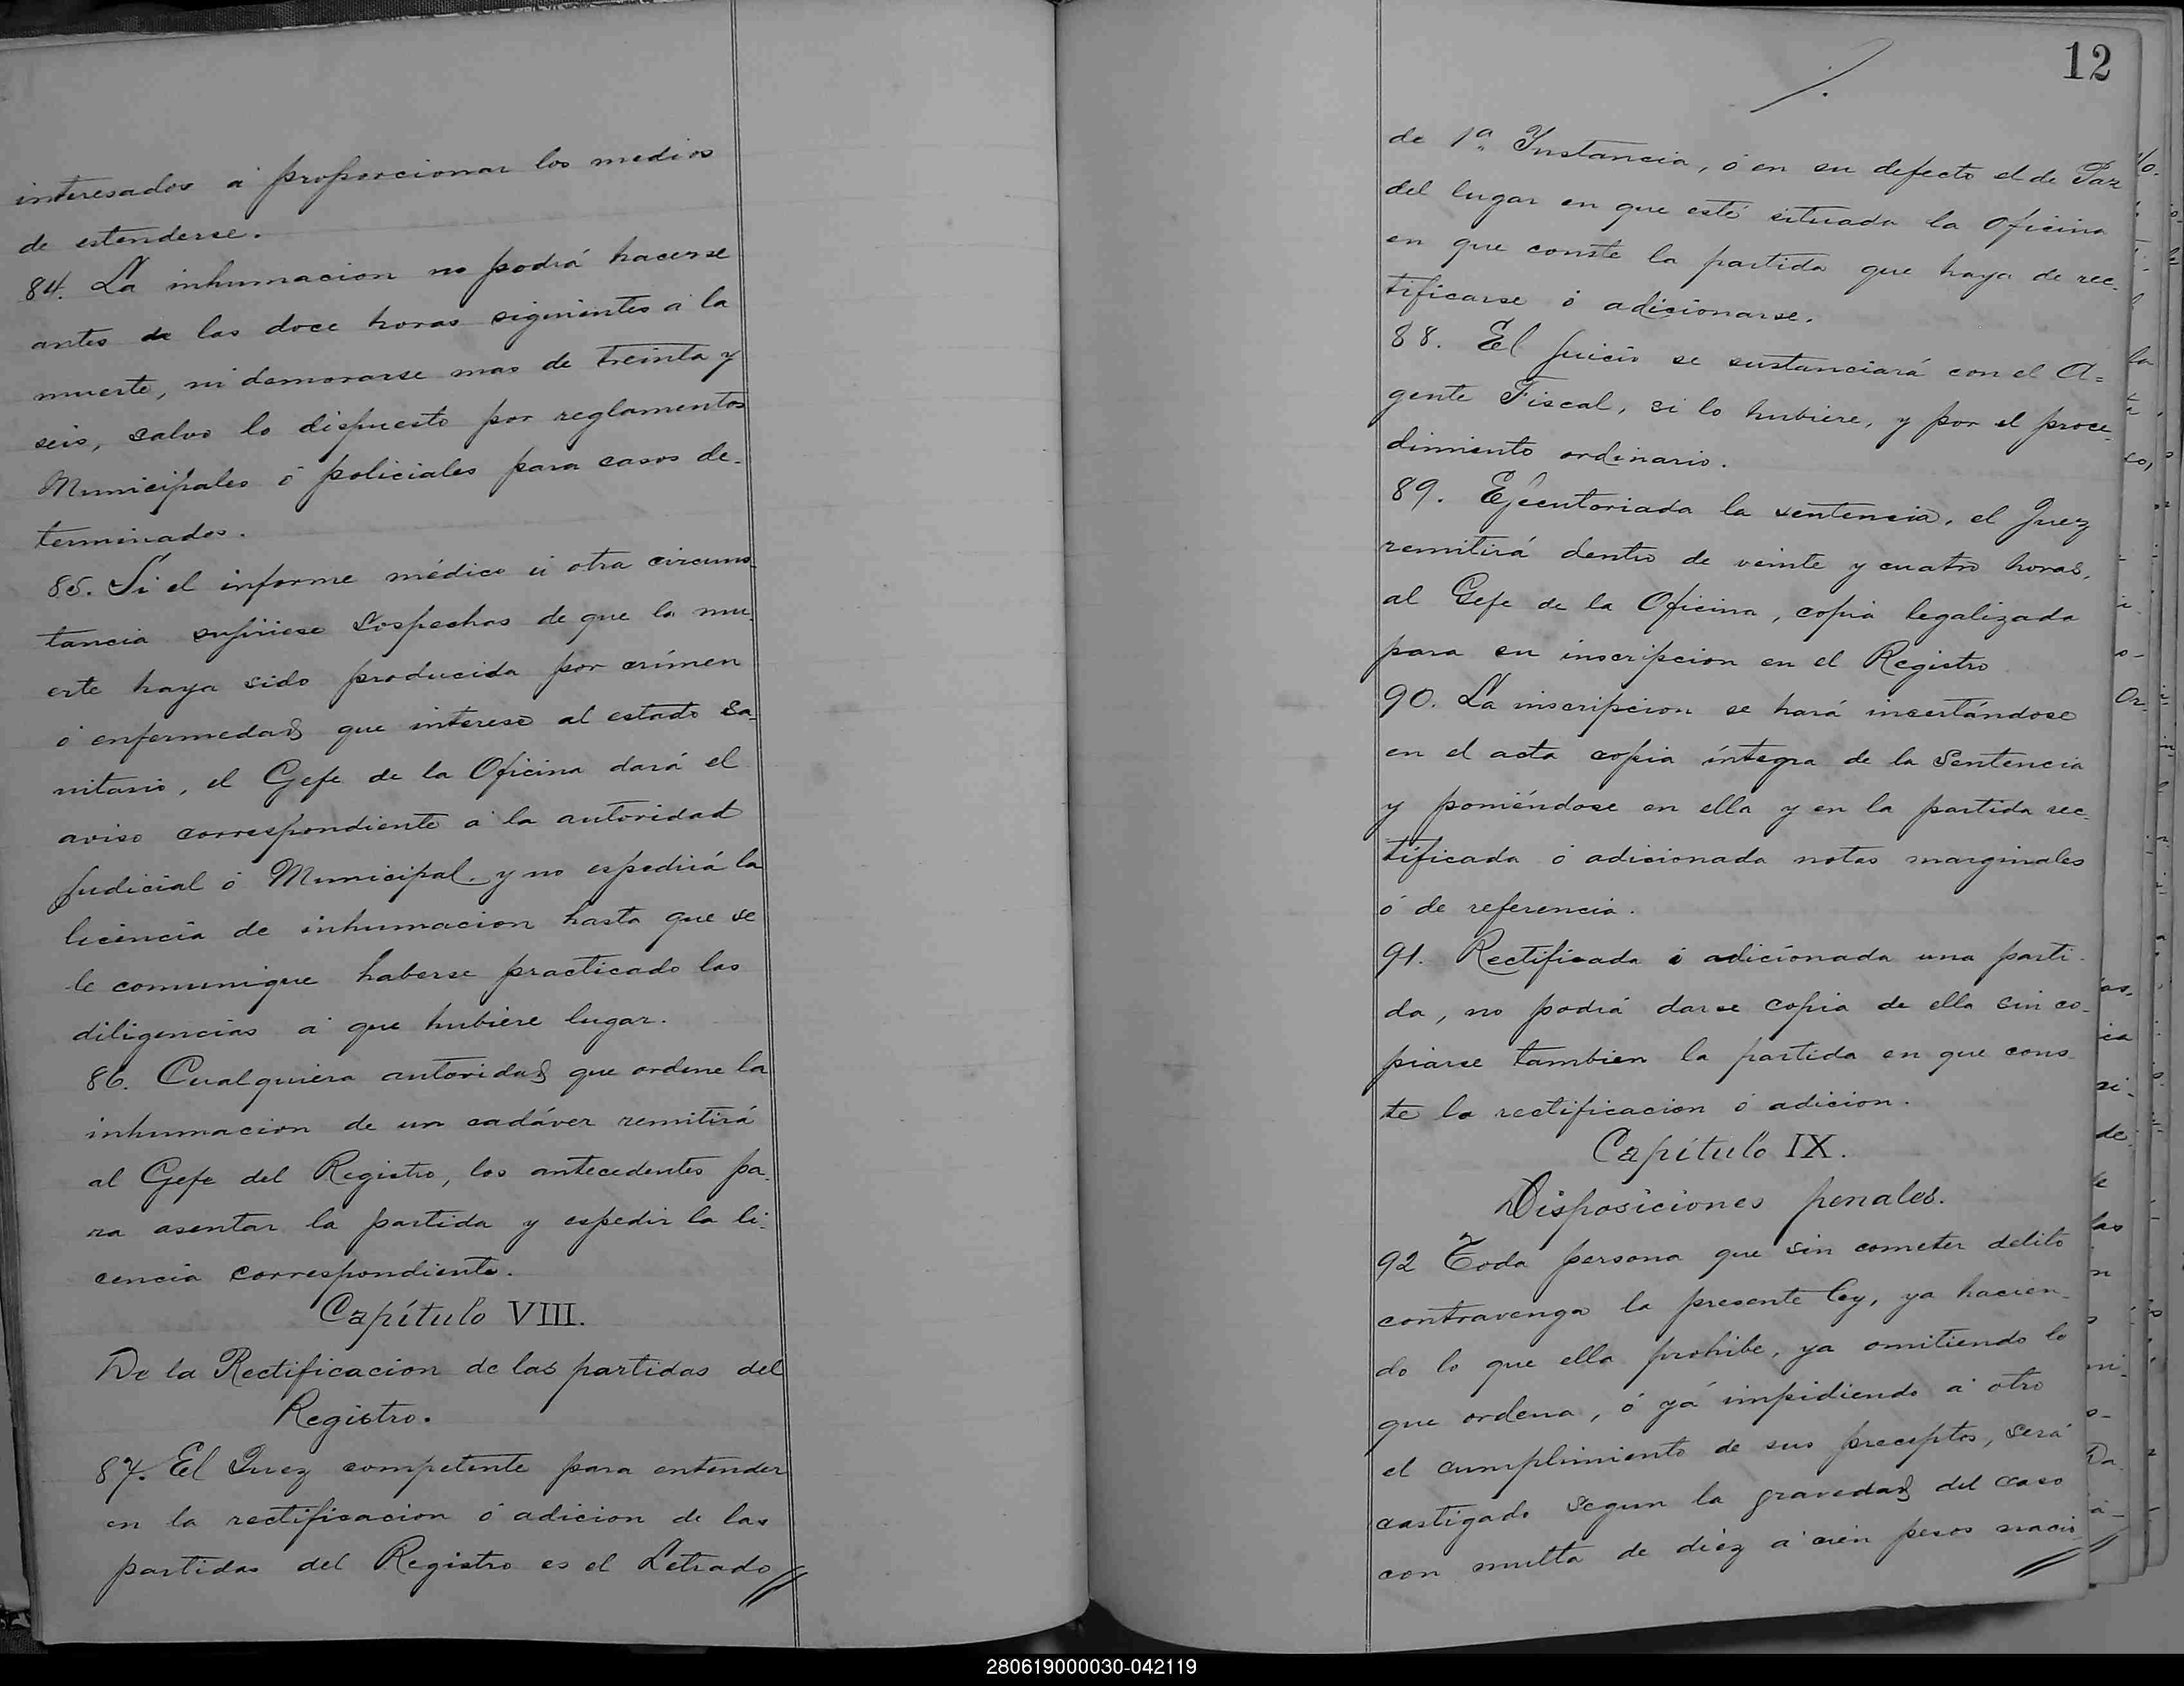 interesados á proporcionar los medios
de estenderse.
84. La inhumacion no podrá hacerse
antes de las doce horas siguientes á la
muerte, ni demorarse mas de treinta y
seis, salvo lo dispuesto por reglamentos
Municipales ó policiales para casos de-
terminados.
85. Si el informe médico ú otra circuns-
tancia sujiriese sospechas de que la mu-
erte haya sido producida por crímen
ó enfermedad que interese al estado sa-
nitario, el Gefe de la Oficina dará el
aviso correspondiente á la autoridad
judicial ó Municipal y no espedirá la
licencia de inhumacion hasta que se
le comunique haberse practicado las
diligencias á que hubiere lugar.
86. Cualquiera autoridad que ordene la
inhumacion de un cadáver remitirá
al Gefe del Registro, los antecedentes pa-
ra asentar la partida y espedir la li-
cencia correspondiente.
Capítulo VIII.
De la Rectificacion de las partidas del
Registro.
87. El Juez competente para entender
en la rectificacion ó adicion de las
partidas del Registro es el Letrado
12
de 1ª Instancia, ó en su defecto el de Paz
del lugar en que esté situada la Oficina
en que conste la partida que haya de rec-
tificarse ó adicionarse.
88. El juicio se sustanciará con el A=
gente Fiscal, si lo hubiere, y por el proce-
dimiento ordinario.
89. Ejecutoriada la sentencia, el Juez
remitirá dentro de veinte y cuatro horas,
al Gefe de la Oficina, copia legalizada
para su inscripcion en el Registro
90. La inscripcion se hará insertándose
en el acta copia íntegra de la Sentencia
y poniéndose en ella y en la partida rec-
tificada ó adicionada notas marginales
ó de referencia.
91. Rectificada ó adicionada una parti-
da, no podrá darse copia de ella sin co-
piarse tambien la partida en que cons-
te la rectificacion ó adicion.
Capítulo IX.
Disposiciones penales.
92 Toda persona que sin cometer delito
contravenga la presente ley, ya hacien-
do lo que ella prohibe, ya omitiendo lo
que ordena, ó yá impidiendo á otro
el cumplimiento de sus preceptos, será
castigado segun la gravedad del caso
con multa de diez á cien pesos nacio
280619000030-042119